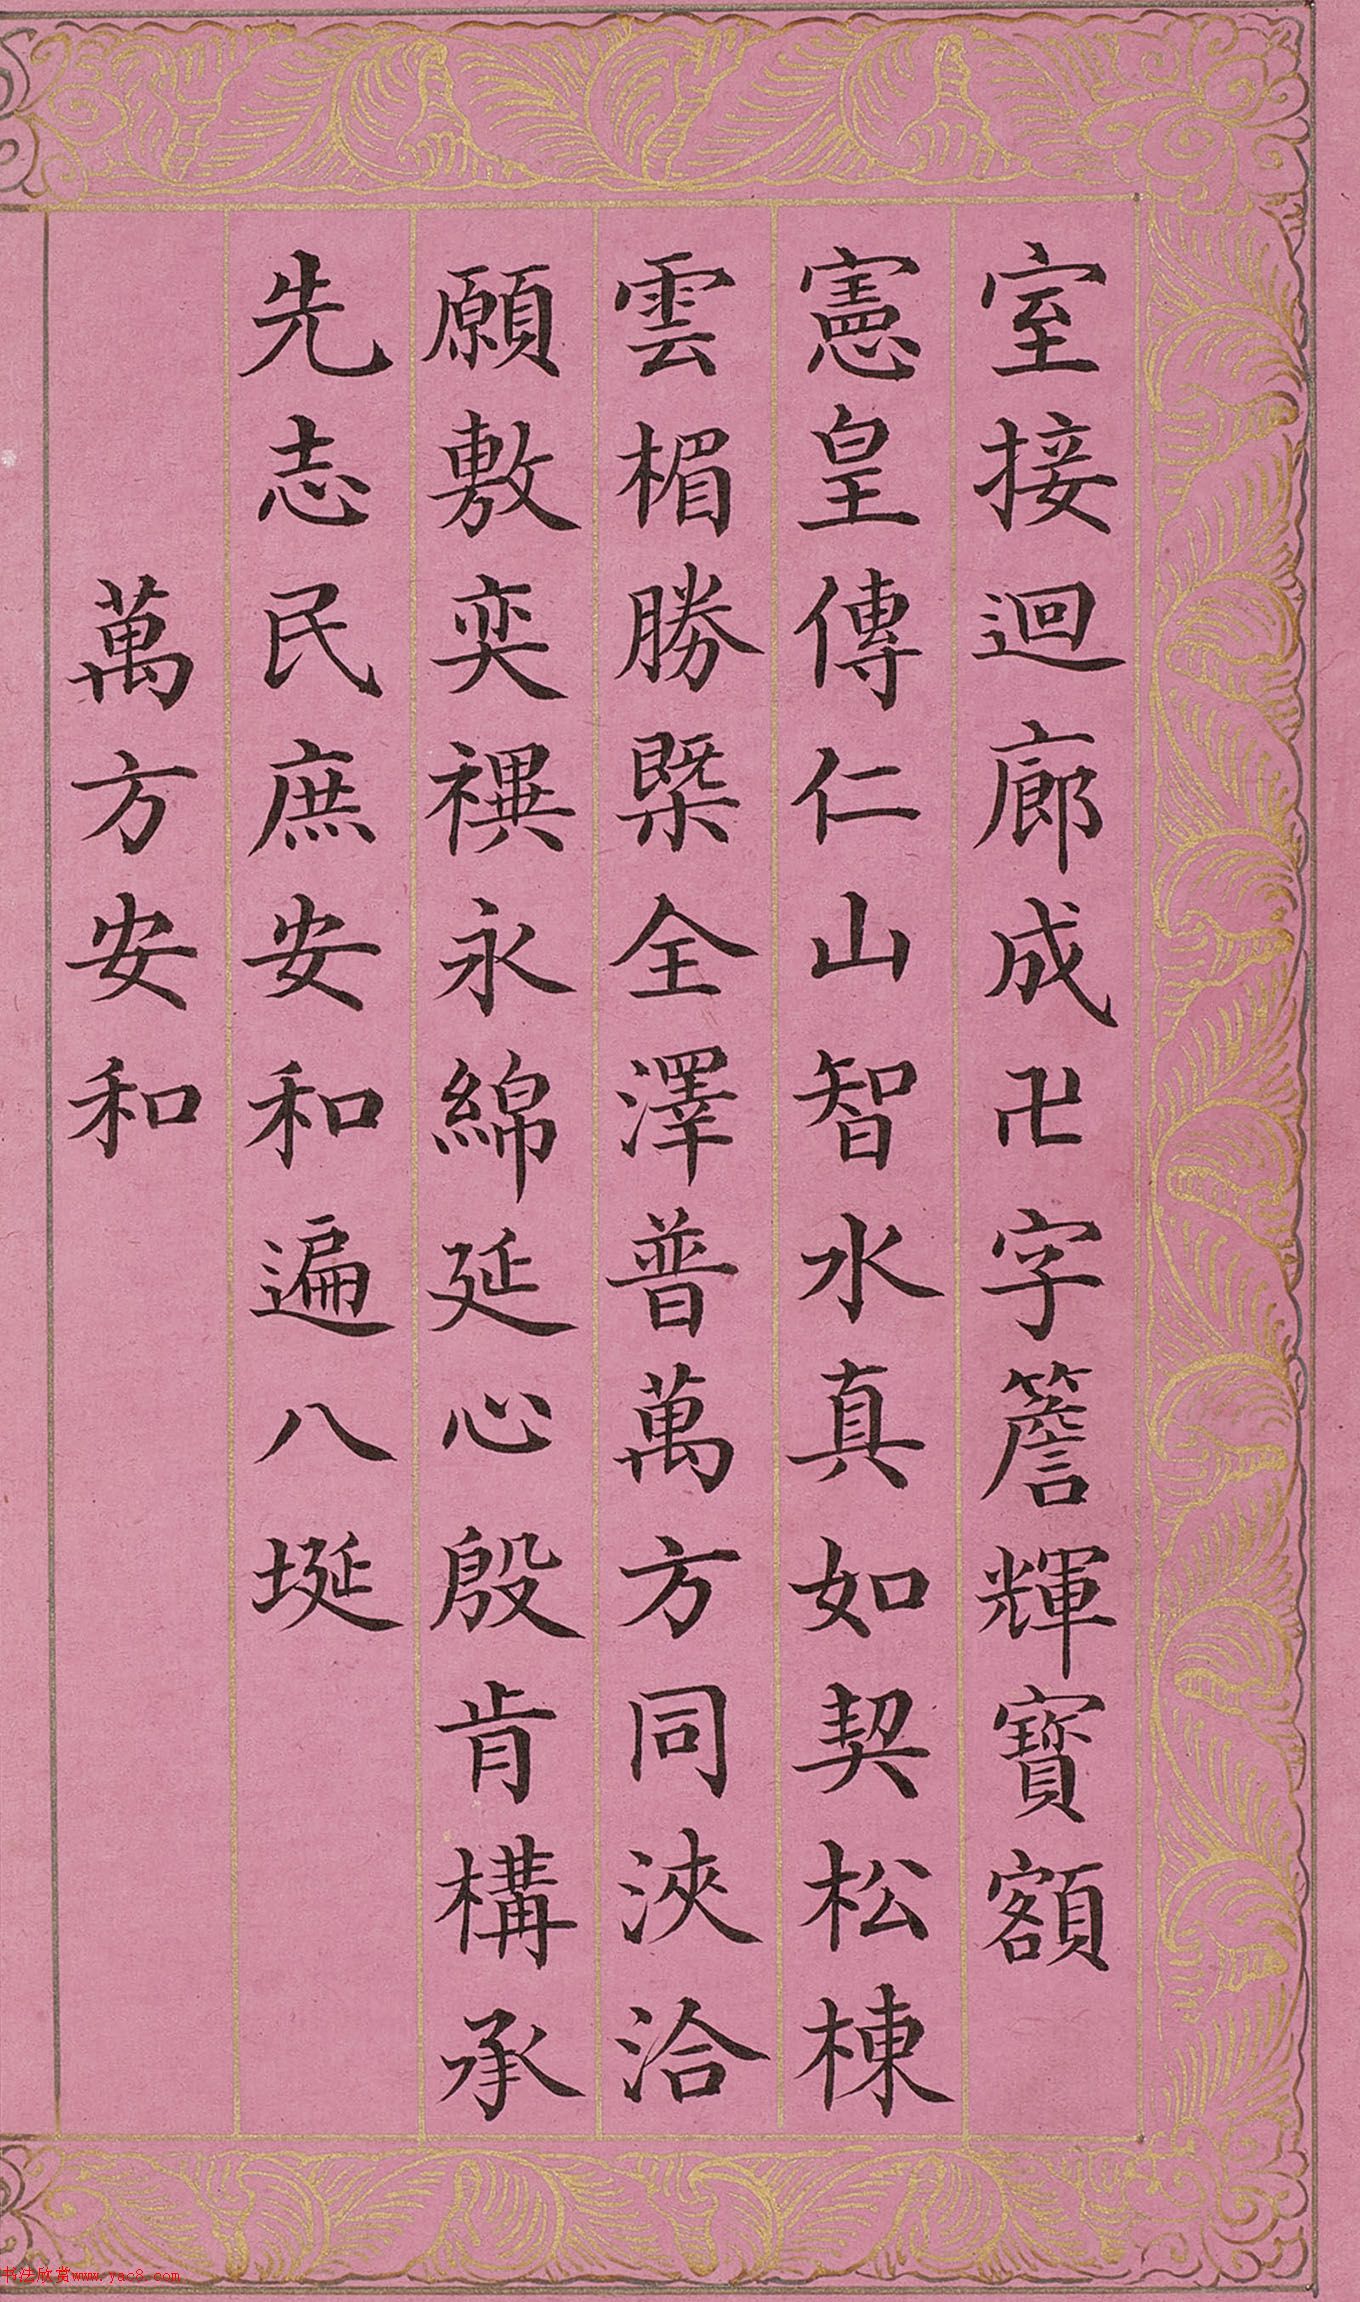 室接迴廊成卍字簷輝寶額
憲皇傳仁山智水真如契松棟
雲楣勝槩全澤普萬方同浹洽
願敷奕禩永綿延心殷肯構承
先志民庶安和遍八埏
萬方安和
书法欣赏www.yac8.com